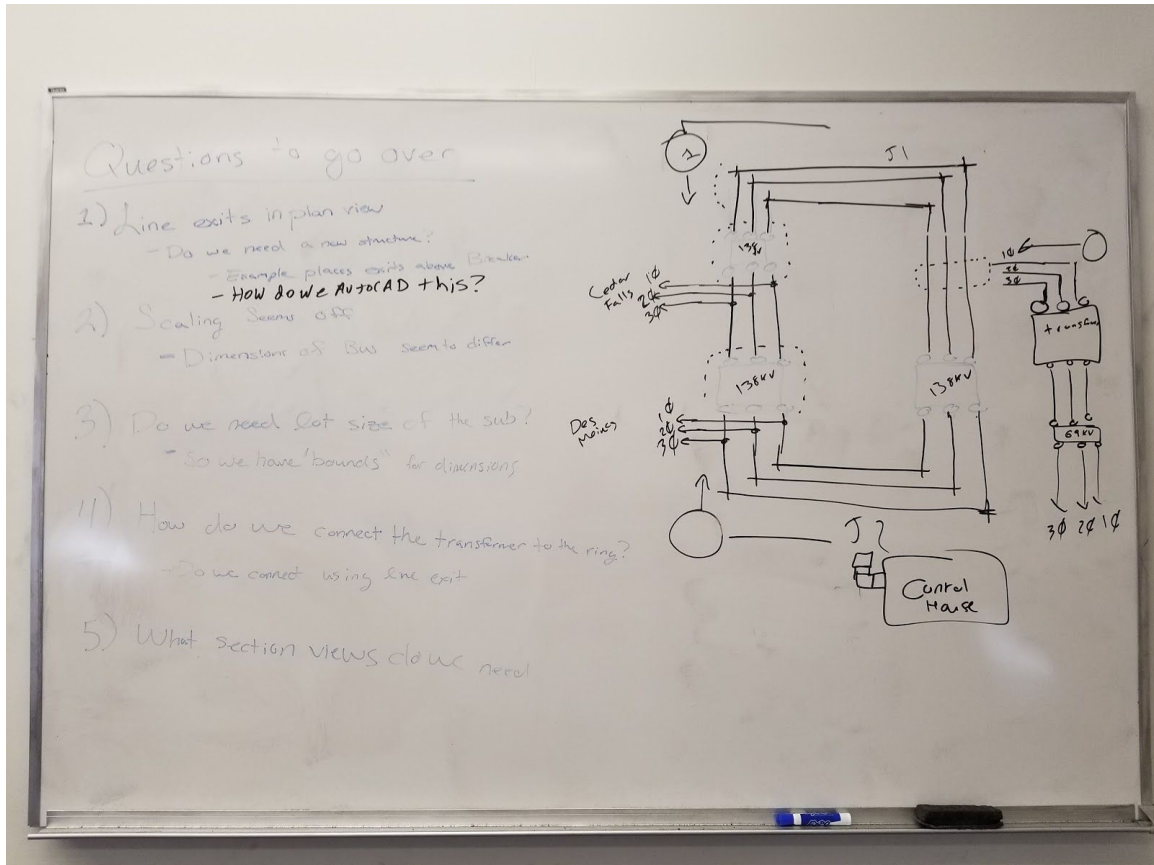 Questions to go over
1) Line exits in plan view
- Do we need a new structure?
- Example places exits above Breaker
- How do we AutoCAD this?
2) Scaling Seems off
- Dimensions of BW seem to differ
3) Do we need lot size of the sub?
- So we have "bounds" for dimensions
4) How do we connect the transformer to the ring?
- Do we connect using line exit
5) What section views do we need
1
J1
138
Cedar Falls
1¢
2¢
3¢
1¢
2¢
3¢
transfmr
138KV
138KV
Des Moines
1¢
2¢
3¢
69KV
3¢ 2¢ 1¢
J2
Control House